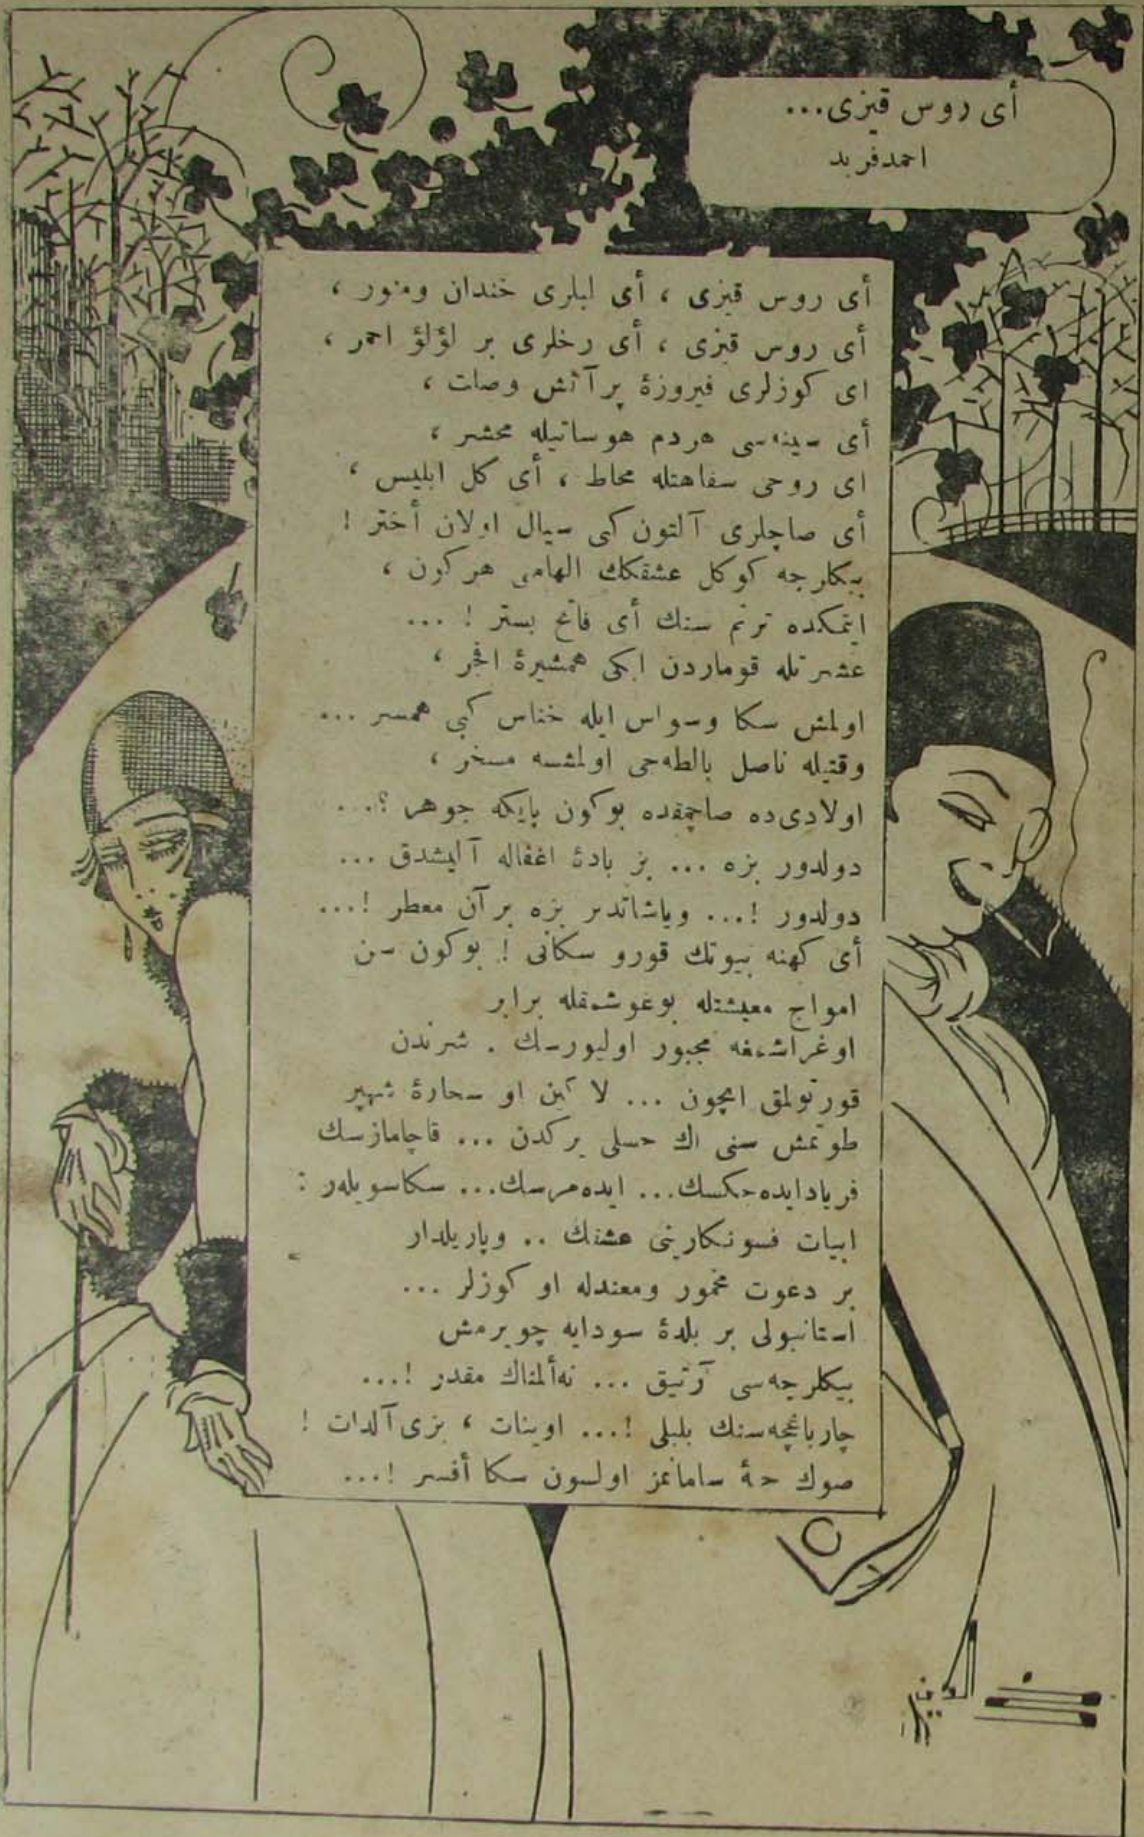 أی روس قیزی...
احمد فرید
أی روس قیزی ، أی لبلری خندان ومنور ،
أی روس قیزی ، أی رخلری بر لؤلؤ احمر ،
ای کوزلری فیروزهٔ پر آتش وصلت ،
أی سینه‌سی هردم هوساتیله محشر ،
ای روحی سفاهتله محاط ، أی کل ابلیس ،
أی صاچلری آلتون کبی سیال اولان أختر !
بیکلرجه کوکل عشقکك الهامی هرکون ،
ایتمکده ترنم سنك أی فاتح بستر ! ...
عشرتله قوماردن ایکی همشیرهٔ افجر ،
اولمش سکا وسواس ایله خناس کبی همسر ...
وقتیله ناصل بالطه‌جی اولمشسه مسخر ،
اولادی‌ده صاچمقده بوکون پایکه جوهر ؟...
دولدور بزه ... بز بادهٔ اغفاله آلیشدق ...
دولدور !... ویاشاتدیر بزه بر آن معطر !...
أی کهنه بیوتك قورو سکانی ! بوکون سن
امواج معیشتله بوغوشمقله برابر
اوغراشمغه مجبور اولیورسك . شرندن
قورتولمق ایچون ... لاکین او سحارهٔ شهپر
طوتمش سنی اك حسلی یرکدن ... قاچامازسك
فریاد ایده‌جکسك... ایده‌مرسك... سکا سویلر :
ابیات فسونکارینی عشقك .. وپاریلدار
بر دعوت مخمور ومعندله او کوزلر ...
استانبولی بر بلدهٔ سودایه چویرمش
بیکلرجه‌سی آرتیق ... نه ألمناك مقدر !...
چارباغچه‌سنك بلبلی !... اوینات ، بزی آلدات !
صوك حبهٔ سامانمز اولسون سکا أفسر !...